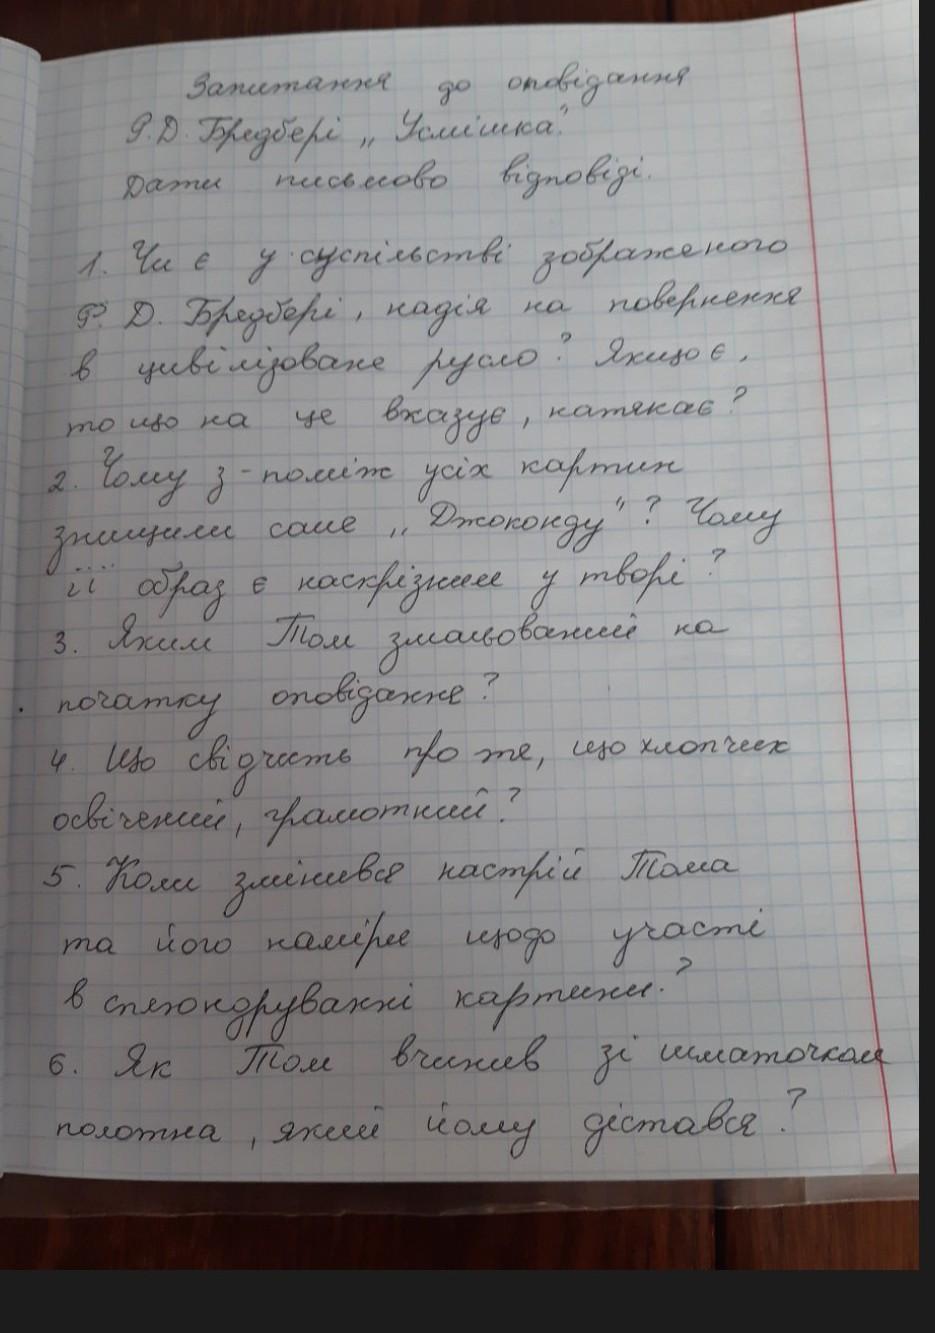 Запитання до оповідання
Р. Д. Бредбері „Усмішка".
Дати письмово відповіді.
1. Чи є у суспільстві зображеного
Р. Д. Бредбері, надія на повернення
в цивілізоване русло? Якщо є,
то що на це вказує, натякає?
2. Чому з-поміж усіх картин
знищили саме „Джоконду"? Чому
її образ є наскрізним у творі?
3. Яким Том змальований на
початку оповідання?
4. Що свідчить про те, що хлопчик
освічений, грамотний?
5. Коли змінився настрій Тома
та його наміри щодо участі
в сплюндруванні картини?
6. Як Том вчинив зі шматочком
полотна, який йому дістався?